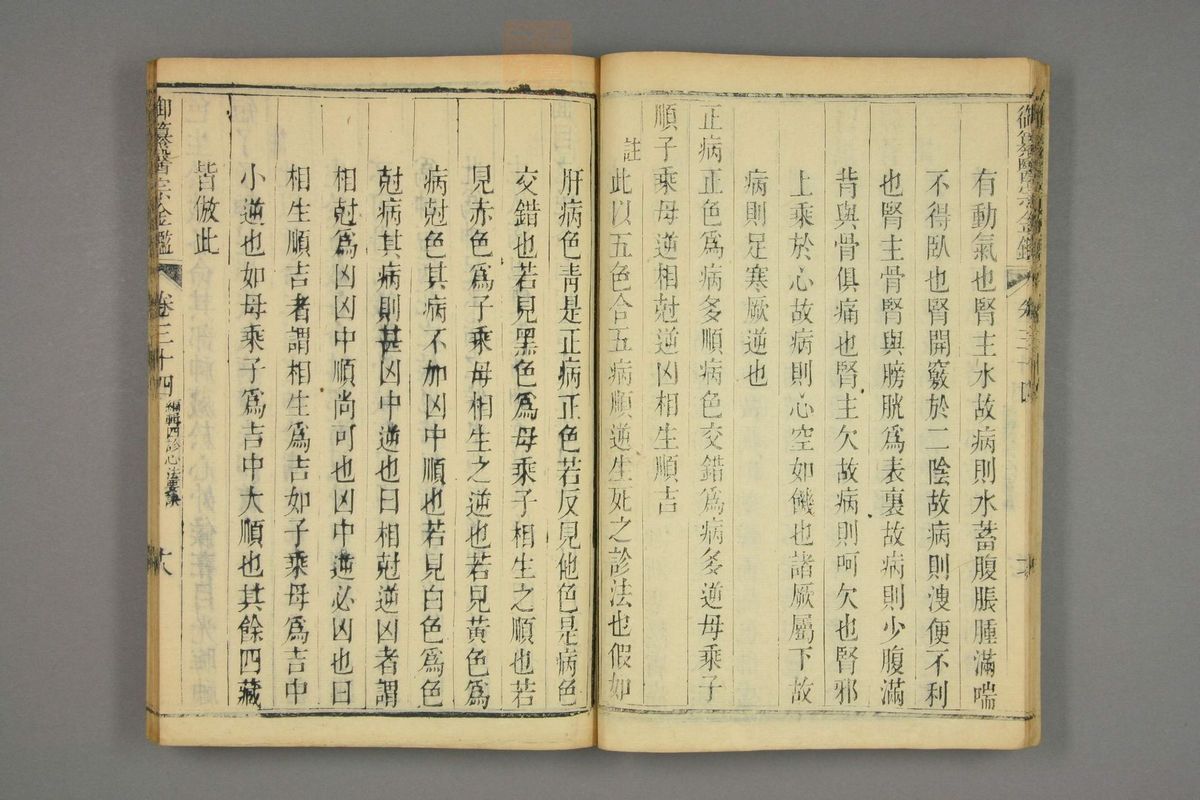 有動氣也腎主水故病則水蓄腹脹腫滿喘
不得臥也腎開竅於二陰故病則溲便不利
也腎主骨腎與膀胱爲表裏故病則少腹滿
背與骨俱痛也腎主欠故病則呵欠也腎邪
上乘於心故病則心空如饑也諸厥屬下故
病則足寒厥逆也
正病正色爲病多順病色交錯爲病多逆母乘子
順子乘母逆相尅逆凶相生順吉
註
此以五色合五病順逆生死之診法也假如
肝病色靑是正病正色若反見他色是病色
交錯也若見黑色爲母乘子相生之順也若
見赤色爲子乘母相生之逆也若見黃色爲
病尅色其病不加凶中順也若見白色爲色
尅病其病則甚凶中逆也曰相尅逆凶者謂
相尅爲凶凶中順尚可也凶中逆必凶也曰
相生順吉者謂相生爲吉如子乘母爲吉中
小逆也如母乘子爲吉中大順也其餘四藏
皆倣此
御纂醫宗金鑑 卷三十四 編輯四診心法要訣 十八